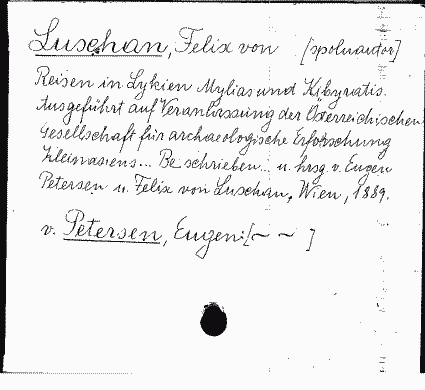 Luschan, Felix von [spoluautor]
Reisen in Lykien Mylias und Kibyratis.
Ausgeführt auf Veranlassung der Österreichischen
Gesellschaft für archaeologische Erforschung
Kleinasiens... Beschrieben... u. hrsg. v. Eugen
Petersen u. Felix von Luschan, Wien, 1889.
v. Petersen, Eugen: [~ ~ ]